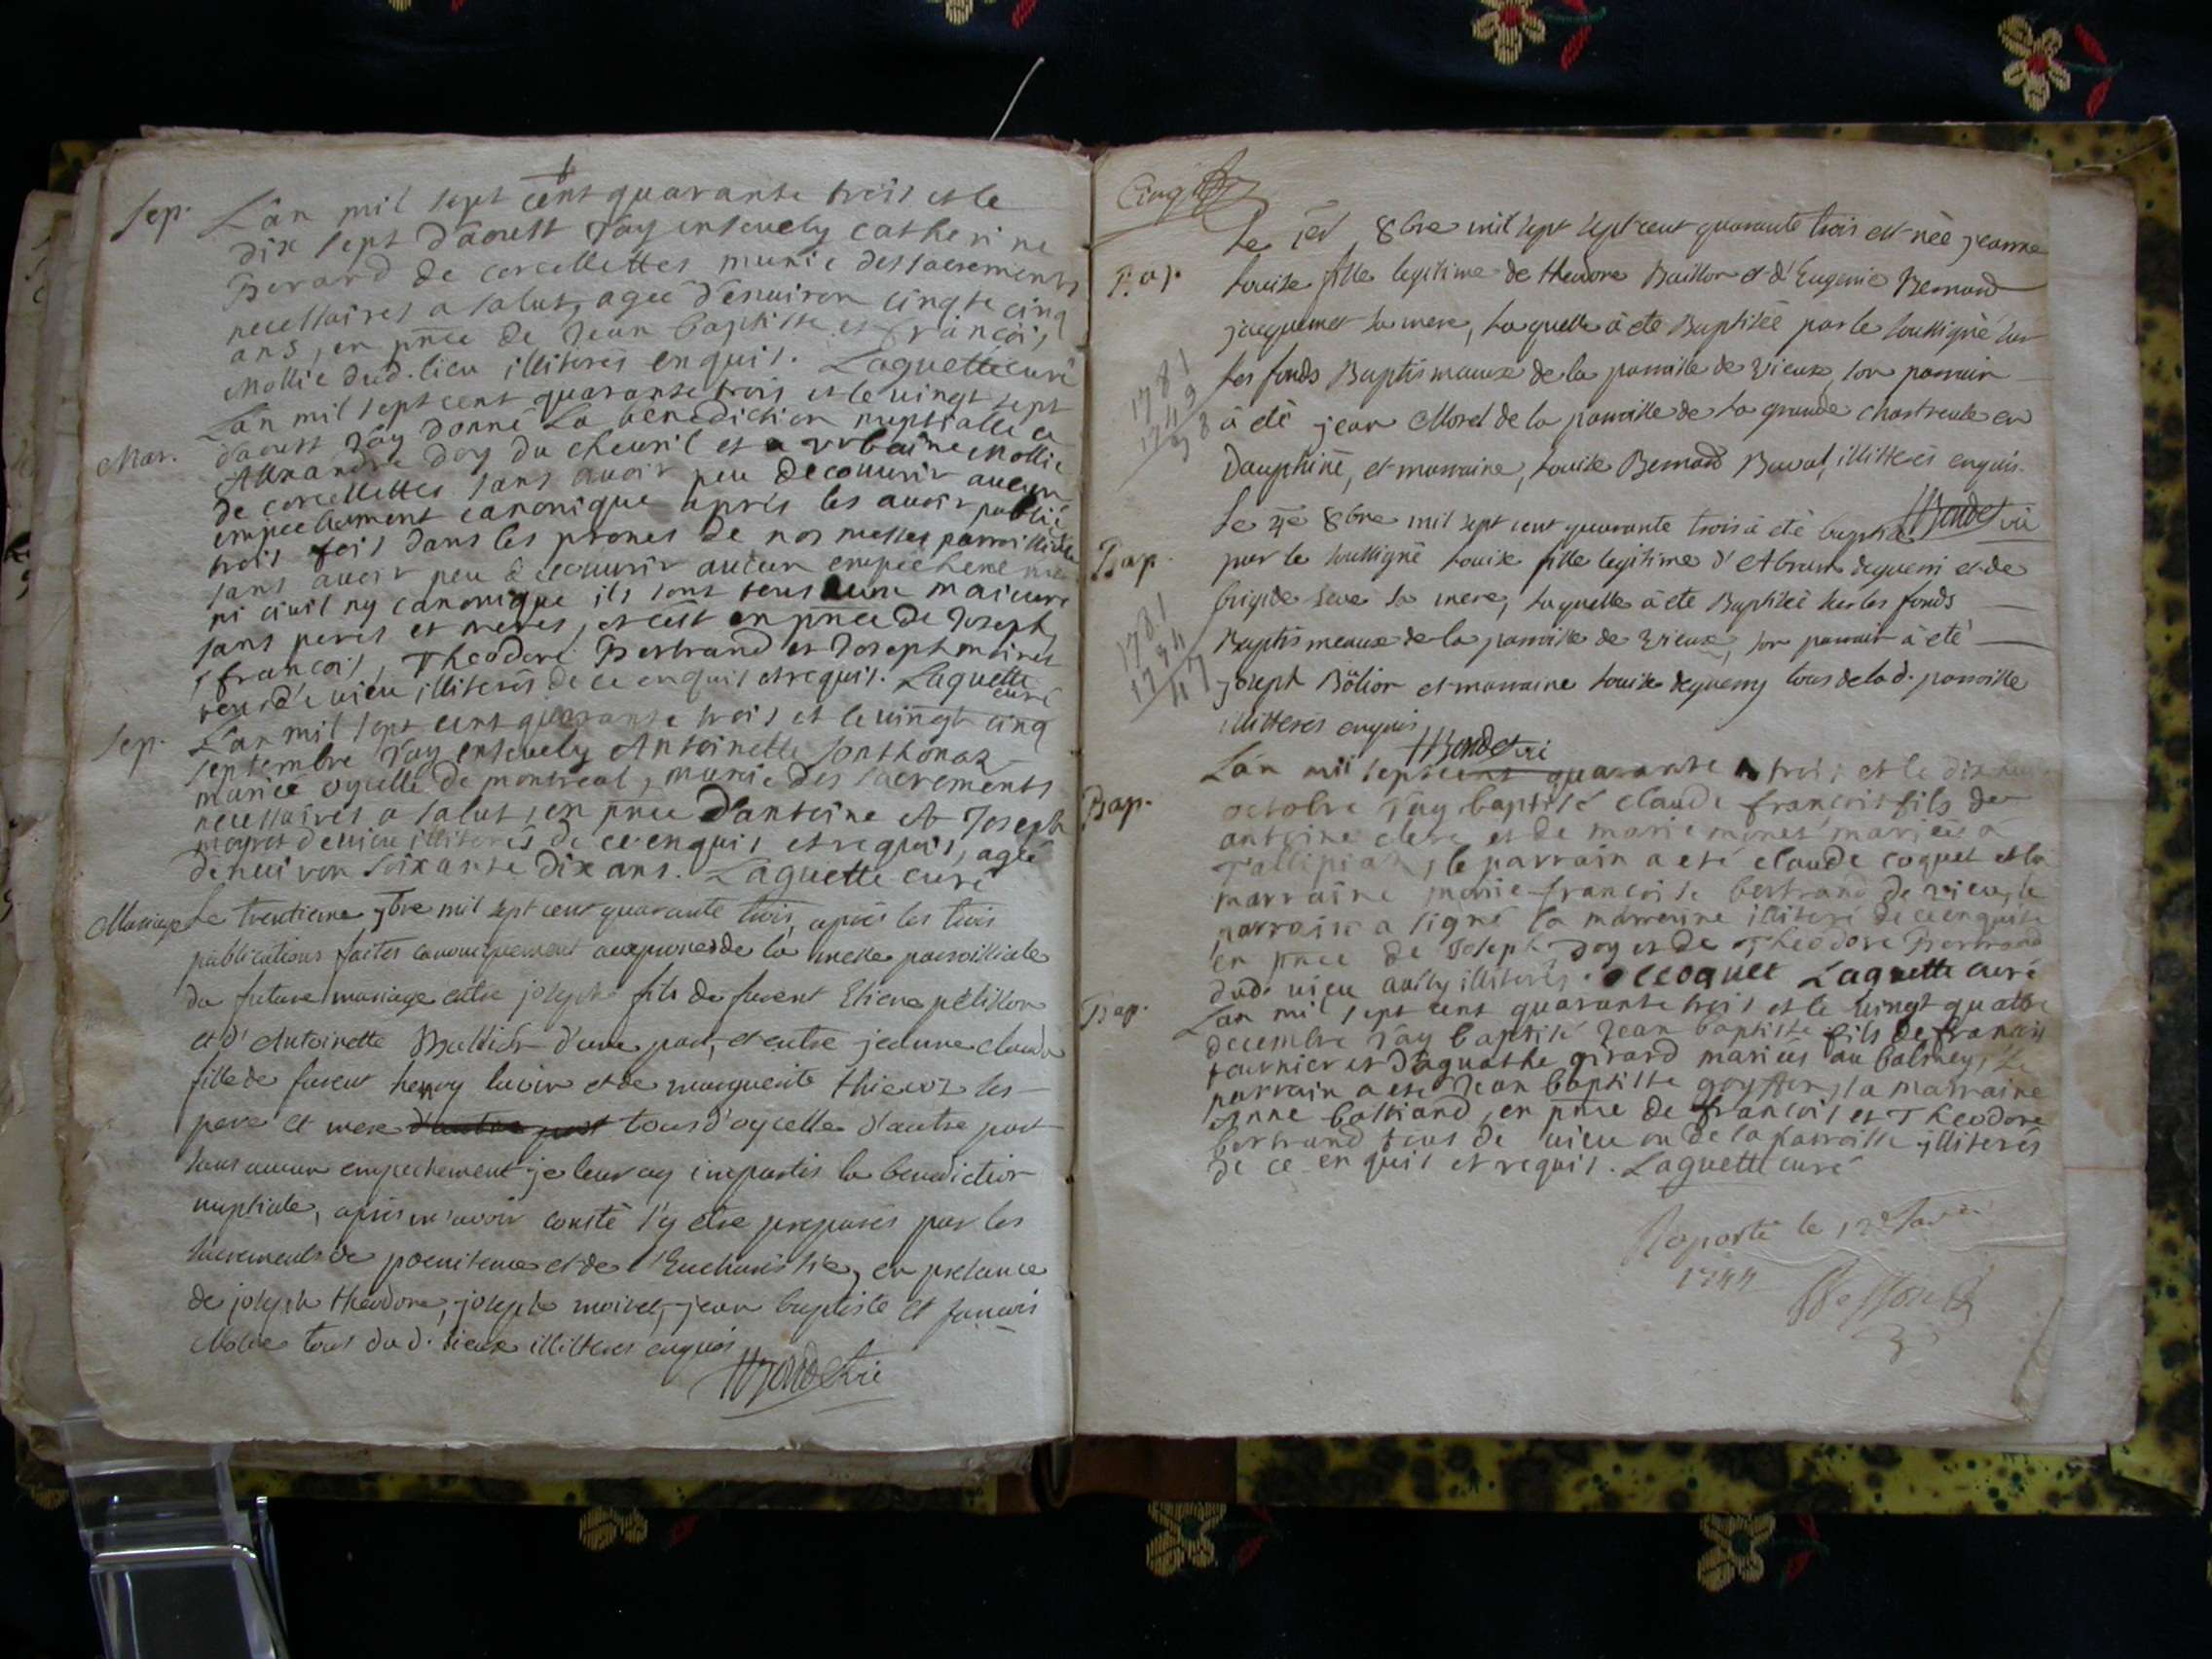 Sep. L'an mil sept cent quarante trois et le
dix sept d'aoust J'ay enseuely catherine
Berard de corcellettes munie des sacrements
necessaires a salut, agee d'enuiron cinqte cinq
ans, en pnce de Jean baptiste et francois
Mollie dud. lieu illiteres enquis. Laguette curé
Mar. L'an mil sept cent quarante trois et le uingt sept
d'aoust J'ay donné La benediction nuptialle a
Allexandre Doy du cheuril et a vrbaine Mollie
de corcellettes sans auoir peu decouurir aucun
empechement canonique après les auoir publié
trois fois dans les prones de nos messes parroissialle
sans auoir peu decouurir aucun empecheme
ni ciuil ny canonique ils sont tous maieurs
sans peres et meres, et c'est en pnce de Joseph,
francois, Theodore Bertrand et Joseph moiret
tous de uieu illiterés de ce enquis et requis. Laguette
curé
Sep. L'an mil sept cent quarante trois et le uingt cinq
septembre J'ay enseuely Antoinette Sonthonax
mariée oycelle de montreal, munie des sacrements
necessaires a salut, en pnce D'antoine et Joseph
moyret de uieu illiterés de ce enquis et requis, agée
d'enuiron soixante dix ans. Laguette curé
Mariage Le trentieme 7bre mil sept cent quarante trois, après les trois
publications faites canoniquement aux prones de la messe paroissiale
du future mariage entre joseph fils de fuent Etiene petillon
et d'Antoinette Balliet d'une part, et entre jeanne claude
fille de fuent henry et de marguerite thievoz les
pere et mere d'autre part tous d'oycelle d'autre part
sans aucun empechement je leur ay impartis la benediction
nuptiale, après m'avoir consté s'y etre preparés par les
sacrements de poenitence et de l'Eucharistie, en presance
de joseph theodore, joseph moiret, jean baptiste et francois
Molie tous dud. vieux illitteres enquis
Le 1er 8bre mil sept sept cent quarante trois est née jeanne
Bap. Louise fille legitime de theodore Baillor et d'Eugenie Bernard
jacquemet sa mere, laquelle à eté Baptisée par le soussigné sur
les fonds Baptismaux de la paroisse de vieux, son parrain
1781
1743
38
à eté jean Morel de la paroisse de la grande chartreuse en
Dauphiné, et marraine, Louise Bernard Buval, illitterés enquis.
Le 4e 8bre mil sept cent quarante trois à eté baptisé
Bap. par le soussigné Louise fille legitime d'Abram deguerri et de
brigide seve sa mere, laquelle à eté Baptisée sur les fonds
1781
1744
47
Baptismeaux de la paroisse de vieux, son parrain à eté
joseph Bölior et marraine Louise deguerry tous de la d. paroisse
illitterés enquis
Bap. L'an mil sept cent quarante trois et le dix
octobre J'ay baptisé claude francois fils de
antoine clerc et de marie monet mariés a
Tallipiat, le parrain a eté claude coquet et la
marraine marie-francoise bertrand de vieu, le
parrain a signé la marraine illiteré de ce enquise
en pnce de Joseph Doy et de Theodore Bertrand
dud. uieu aussy illiterés. C Coquet Laguette curé
Bap. L'an mil sept cent quarante trois et le uingt quatre
decembre J'ay baptisé Jean baptiste fils de francois
tournier et d'aguathe girard mariés au balmey, le
parrain a eté Jean baptiste goyffon, la marraine
Anne balliand, en pnce de francois et Theodore
bertrand tous de uieu ou de la parroisse illiterés
de ce enquis et requis. Laguette curé
Raporté le 12e
1744